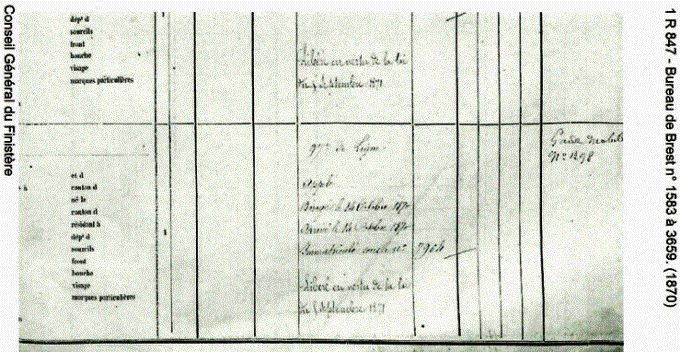 Conseil Général du Finistère
1 R 847 - Bureau de Brest n° 1583 à 3659. (1870)
dépt d
sourcils
front
bouche
visage
marques particulières
1
Libéré en vertu de la loi
du 5 Septembre 1871
97e de ligne
Garde mobile
N° 1898
et d
canton d
né le
canton d
résidant à
dépt d
sourcils
front
bouche
visage
marques particulières
1
Appelé
Arrivé le 14 Octobre 1870
Immatriculé sous le n° 7904
Libéré en vertu de la loi
du 5 Septembre 1871